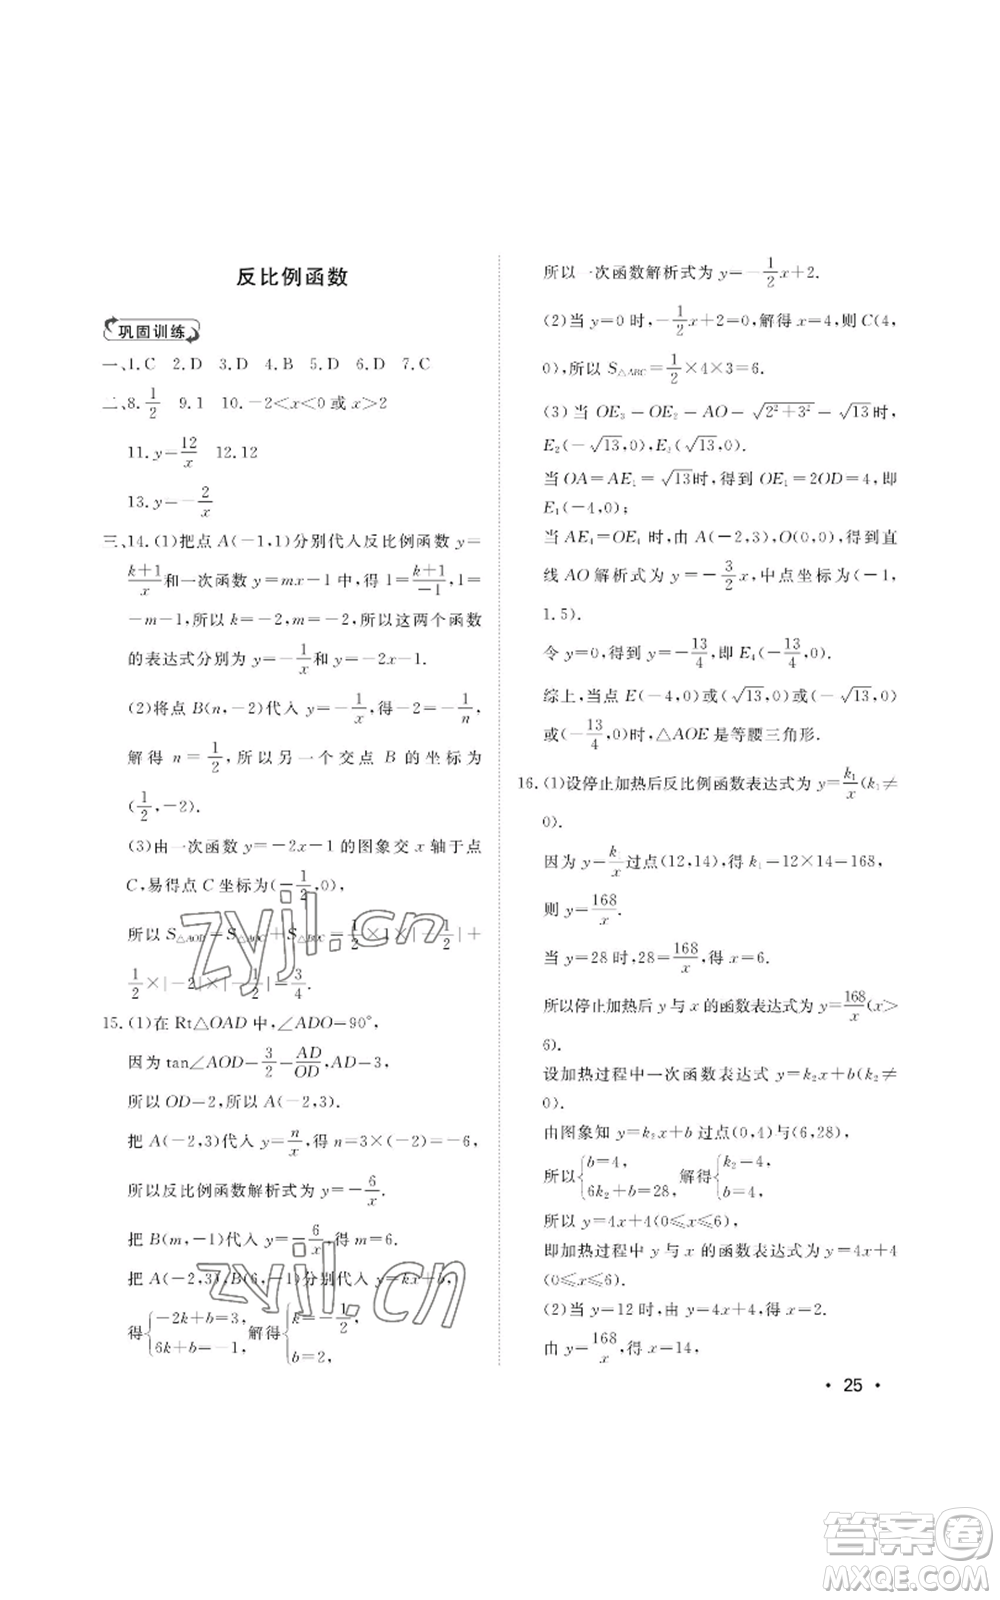 反比例函数
巩固训练
一、1.C 2.D 3.D 4.B 5.D 6.D 7.C
二、8. 1/2 9.1 10.－2<x<0或x>2
11.y=12/x 12.12
13.y=－2/x
三、14.(1)把点A(－1,1)分别代入反比例函数y=
(k+1)/x和一次函数y=mx－1中,得1=(k+1)/－1,1=
－m－1,所以k=－2,m=－2,所以这两个函数
的表达式分别为y=－1/x和y=－2x－1.
(2)将点B(n,－2)代入y=－1/x,得－2=－1/n,
解得n=1/2,所以另一个交点B的坐标为
(1/2,－2).
(3)由一次函数y=－2x－1的图象交x轴于点
C,易得点C坐标为(－1/2,0),
所以S△AOB=S△AOC+S△BOC=1/2×1×|－1/2|+
1/2×|－2|×|－1/2|=3/4.
15.(1)在Rt△OAD中,∠ADO=90°,
因为tan∠AOD=3/2=AD/OD,AD=3,
所以OD=2,所以A(－2,3).
把A(－2,3)代入y=n/x,得n=3×(－2)=－6,
所以反比例函数解析式为y=－6/x.
把B(m,－1)代入y=－6/x,得m=6.
把A(－2,3),B(6,－1)分别代入y=kx+b,
得{－2k+b=3, 6k+b=－1, 解得{k=－1/2, b=2,
所以一次函数解析式为y=－1/2x+2.
(2)当y=0时,－1/2x+2=0,解得x=4,则C(4,
0),所以S△ABC=1/2×4×3=6.
(3)当OE3=OE2=AO=√(2²+3²)=√13时,
E2(－√13,0),E3(√13,0).
当OA=AE1=√13时,得到OE1=2OD=4,即
E1(－4,0);
当AE4=OE4时,由A(－2,3),O(0,0)得到直
线AO解析式为y=－3/2x,中点坐标为(－1,
1.5).
令y=0,得到y=－13/4,即E4(－13/4,0).
综上,当点E(－4,0)或(√13,0)或(－√13,0)
或(－13/4,0)时,△AOE是等腰三角形.
16.(1)设停止加热后反比例函数表达式为y=k1/x(k1≠
0).
因为y=k1/x过点(12,14),得k1=12×14=168,
则y=168/x.
当y=28时,28=168/x,得x=6.
所以停止加热后y与x的函数表达式为y=168/x(x>
6).
设加热过程中一次函数表达式y=k2x+b(k2≠
0).
由图象知y=k2x+b过点(0,4)与(6,28),
所以{b=4, 6k2+b=28, 解得{k2=4, b=4,
所以y=4x+4(0≤x≤6),
即加热过程中y与x的函数表达式为y=4x+4
(0≤x≤6).
(2)当y=12时,由y=4x+4,得x=2.
由y=168/x,得x=14,
• 25 •
zyjl.cn
zyjl.cn
答案圈
MXQE.COM